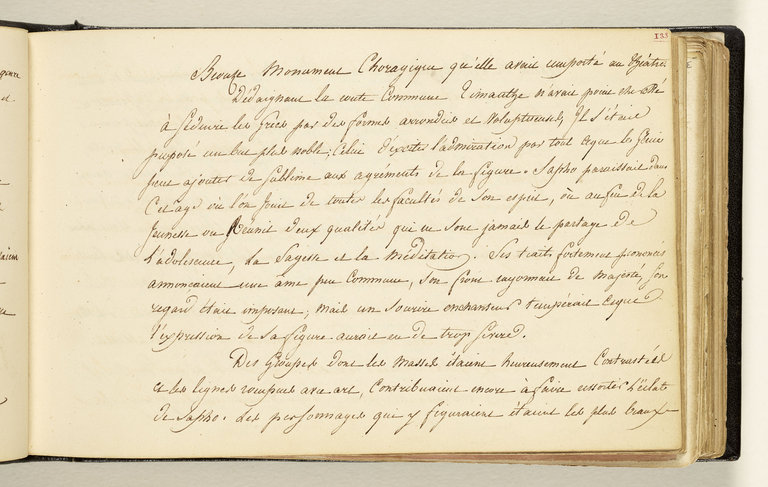 133
Bronze Monument Choragique qu'elle avait emporté au théâtre
Dédaignant la route Commune Timanthe n'avait point cherché
à séduire les Grecs par des formes arrondies et voluptueuses, Il s'étais
proposé un but plus noble; Celui d'exciter l'admiration par tout ce que le Génie
peut ajouter de sublime aux agréments de la figure. Sapho paraissait dans
Cet age où l'on jouit de toutes les facultés de son esprit, où au feu de la
jeunesse on Réunit deux qualités qui ne sont jamais le partage de
l'adolescence, la Sagesse et la Méditation. Ses traits fortement prononcés
annoncaient une ame peu Commune, Son front rayonnait de Majesté, Son
regard était imposant; mais un Sourire enchanteur tempérait ce que
l'expression de Sa figure aurait eu de trop sévère.
Des Grouppes dont les Masses étaient heureusement Contrastées
et les lignes rompues avec art, Contribuaient encore à faire ressortir l'éclat
de Sapho. Les personnages qui y figuraient étaient les plus beaux